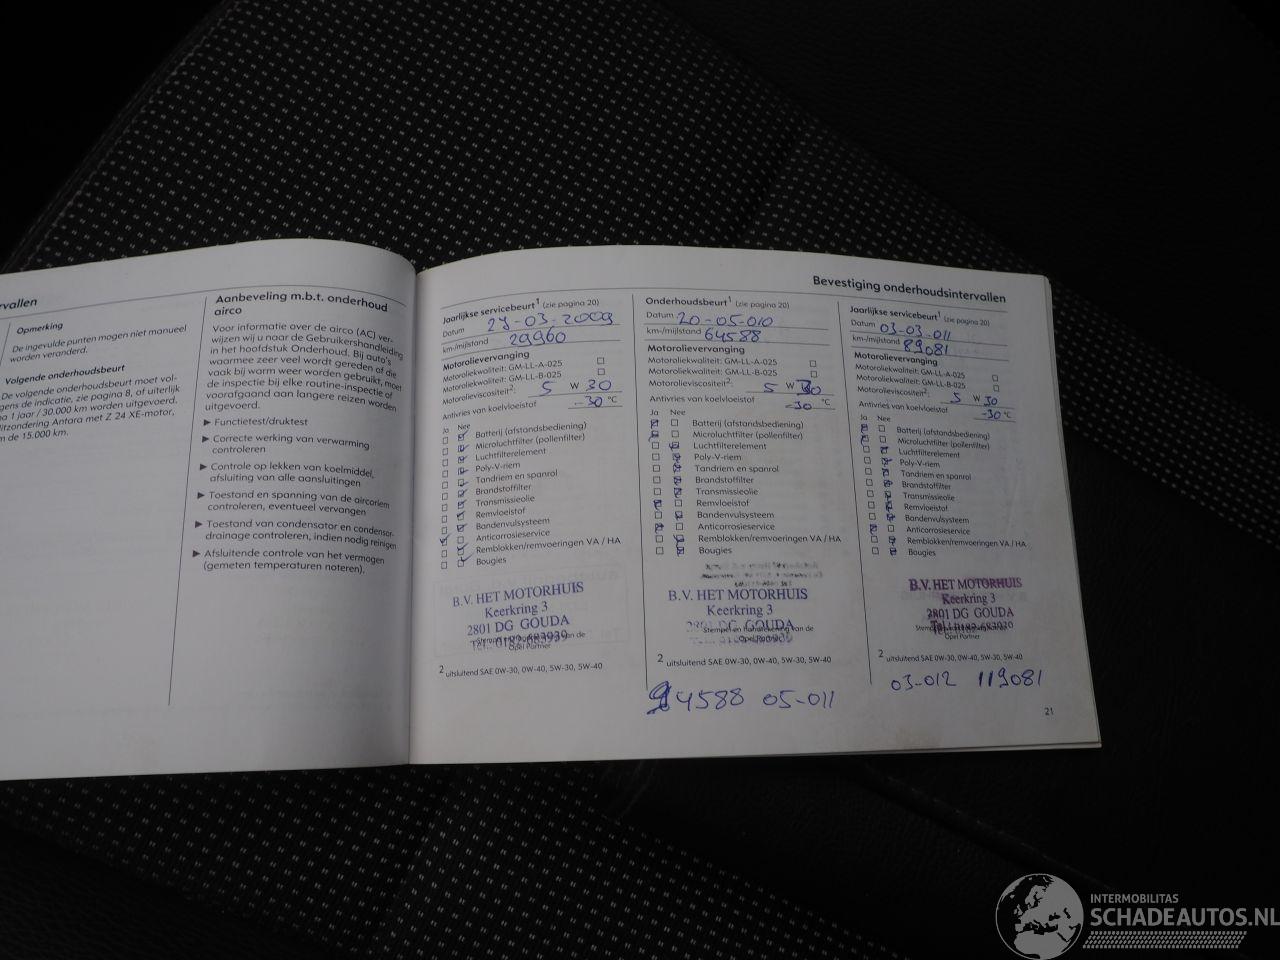 rvallen
Opmerking
De ingevulde punten mogen niet manueel
worden veranderd.
Volgende onderhoudsbeurt
De volgende onderhoudsbeurt moet vol-
gens de indicatie, zie pagina 8, of uiterlijk
na 1 jaar / 30.000 km worden uitgevoerd.
itzondering Antara met Z 24 XE-motor,
m de 15.000 km.
Aanbeveling m.b.t. onderhoud
airco
Voor informatie over de airco (AC) ver-
wijzen wij u naar de Gebruikershandleiding
in het hoofdstuk Onderhoud. Bij auto's
waarmee zeer veel wordt gereden of die
vaak bij warm weer worden gebruikt, moet
de inspectie bij elke routine-inspectie of
voorafgaand aan langere reizen worden
uitgevoerd.
▶ Functietest/druktest
▶ Correcte werking van verwarming
controleren
▶ Controle op lekken van koelmiddel,
afsluiting van alle aansluitingen
▶ Toestand en spanning van de aircoriem
controleren, eventueel vervangen
▶ Toestand van condensator en condensor-
drainage controleren, indien nodig reinigen
▶ Afsluitende controle van het vermogen
(gemeten temperaturen noteren).
Bevestiging onderhoudsintervallen
Jaarlijkse servicebeurt1 (zie pagina 20)
Datum 27-03-2009
km-/mijlstand 29960
Motorolievervanging
Motoroliekwaliteit: GM-LL-A-025
Motoroliekwaliteit: GM-LL-B-025
Motorolieviscositeit2: 5 W 30
Antivries van koelvloeistof -30 °C
Ja Nee
Batterij (afstandsbediening)
Microluchtfilter (pollenfilter)
Luchtfilterelement
Poly-V-riem
Tandriem en spanrol
Brandstoffilter
Transmissieolie
Remvloeistof
Bandenvulsysteem
Anticorrosieservice
Remblokken/remvoeringen VA / HA
Bougies
B.V. HET MOTORHUIS
Keerkring 3
2801 DG GOUDA
Tel.: 0182-683939
Opel Partner
2 uitsluitend SAE 0W-30, 0W-40, 5W-30, 5W-40
Onderhoudsbeurt1 (zie pagina 20)
Datum 20-05-010
km-/mijlstand 64588
Motorolievervanging
Motoroliekwaliteit: GM-LL-A-025
Motoroliekwaliteit: GM-LL-B-025
Motorolieviscositeit2: 5 W 30
Antivries van koelvloeistof -30 °C
Ja Nee
Batterij (afstandsbediening)
Microluchtfilter (pollenfilter)
Luchtfilterelement
Poly-V-riem
Tandriem en spanrol
Brandstoffilter
Transmissieolie
Remvloeistof
Bandenvulsysteem
Anticorrosieservice
Remblokken/remvoeringen VA / HA
Bougies
B.V. HET MOTORHUIS
Keerkring 3
2801 DG GOUDA
Stempel en handtekening van de
Opel Partner
2 uitsluitend SAE 0W-30, 0W-40, 5W-30, 5W-40
94588 05-011
Jaarlijkse servicebeurt1 (zie pagina 20)
Datum 03-03-011
km-/mijlstand 89081
Motorolievervanging
Motoroliekwaliteit: GM-LL-A-025
Motoroliekwaliteit: GM-LL-B-025
Motorolieviscositeit2: 5 W 30
Antivries van koelvloeistof -30 °C
Ja Nee
Batterij (afstandsbediening)
Microluchtfilter (pollenfilter)
Luchtfilterelement
Poly-V-riem
Tandriem en spanrol
Brandstoffilter
Transmissieolie
Remvloeistof
Bandenvulsysteem
Anticorrosieservice
Remblokken/remvoeringen VA / HA
Bougies
B.V. HET MOTORHUIS
Keerkring 3
2801 DG GOUDA
Tel.: 0182-683939
Opel Partner
2 uitsluitend SAE 0W-30, 0W-40, 5W-30, 5W-40
03-012 119081
21
INTERMOBILITAS
SCHADEAUTOS.NL